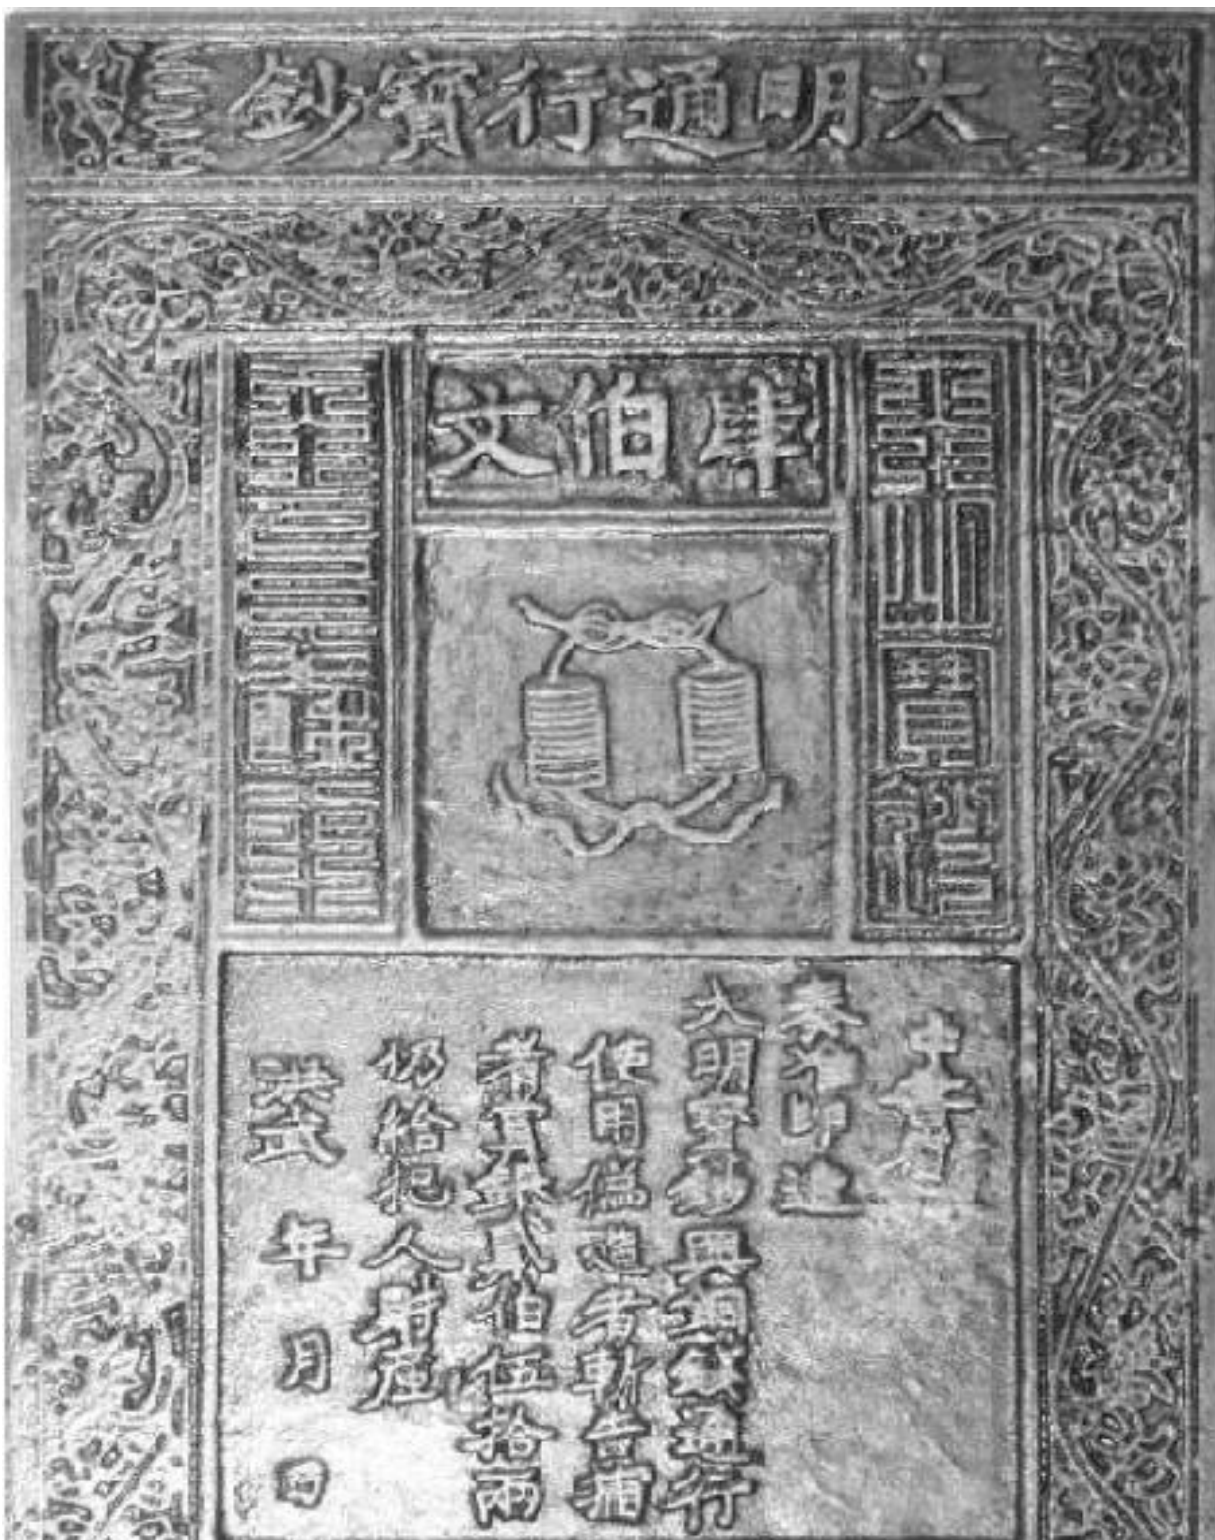 大明通行寶鈔
肆伯文
大明寶鈔
天下通行
中書省
奏准印造
大明寶鈔與銅錢通行
使用偽造者斬告捕
者賞銀貳伯伍拾兩
仍給犯人財產
洪武 年 月 日